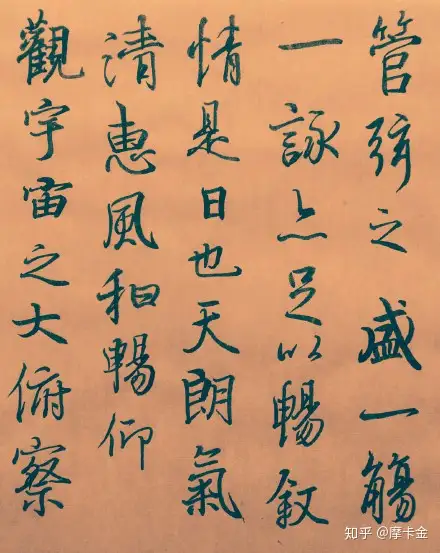 管弦之盛一觴
一詠亦足以暢叙
情是日也天朗氣
清惠風和暢仰
觀宇宙之大俯察
知乎 @摩卡金